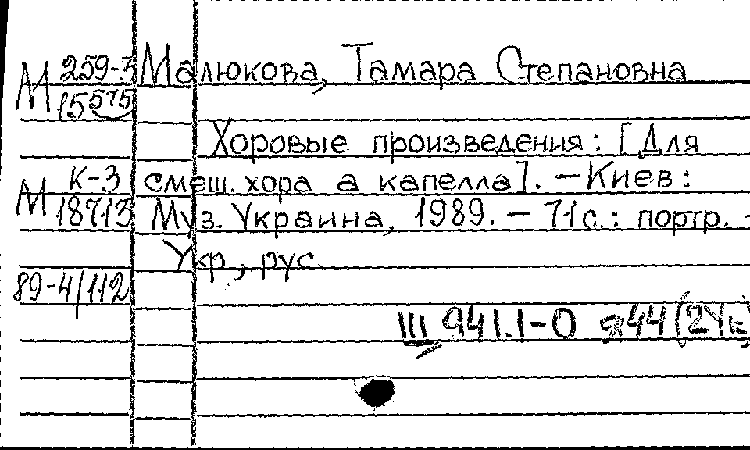 М 259-3 Малюкова, Тамара Степановна
15575
Хоровые произведения: [Для
М К-3 смеш. хора а капелла]. — Киев:
18713 Муз. Украина, 1989. — 71 с.: портр. -
Укр., рус
89-4/112
III 941.1-0 я44(2Ук)